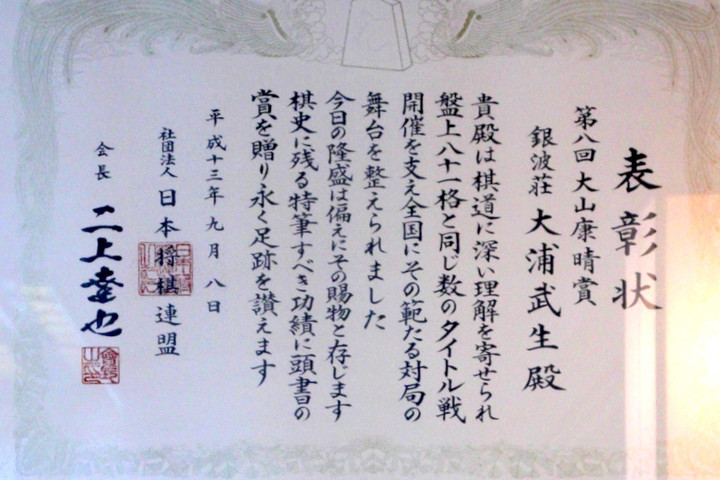 表彰状
第八回 大山康晴賞
銀波荘 大浦武生殿
貴殿は棋道に深い理解を寄せられ
盤上八十一格と同じ数のタイトル戦
開催を支え全国にその範たる対局の
舞台を整えられました
今日の隆盛は偏えにその賜物と存じます
棋史に残る特筆すべき功績に頭書の
賞を贈り永く足跡を讃えます
平成十三年九月八日
社団法人 日本将棋連盟
会長 二上達也